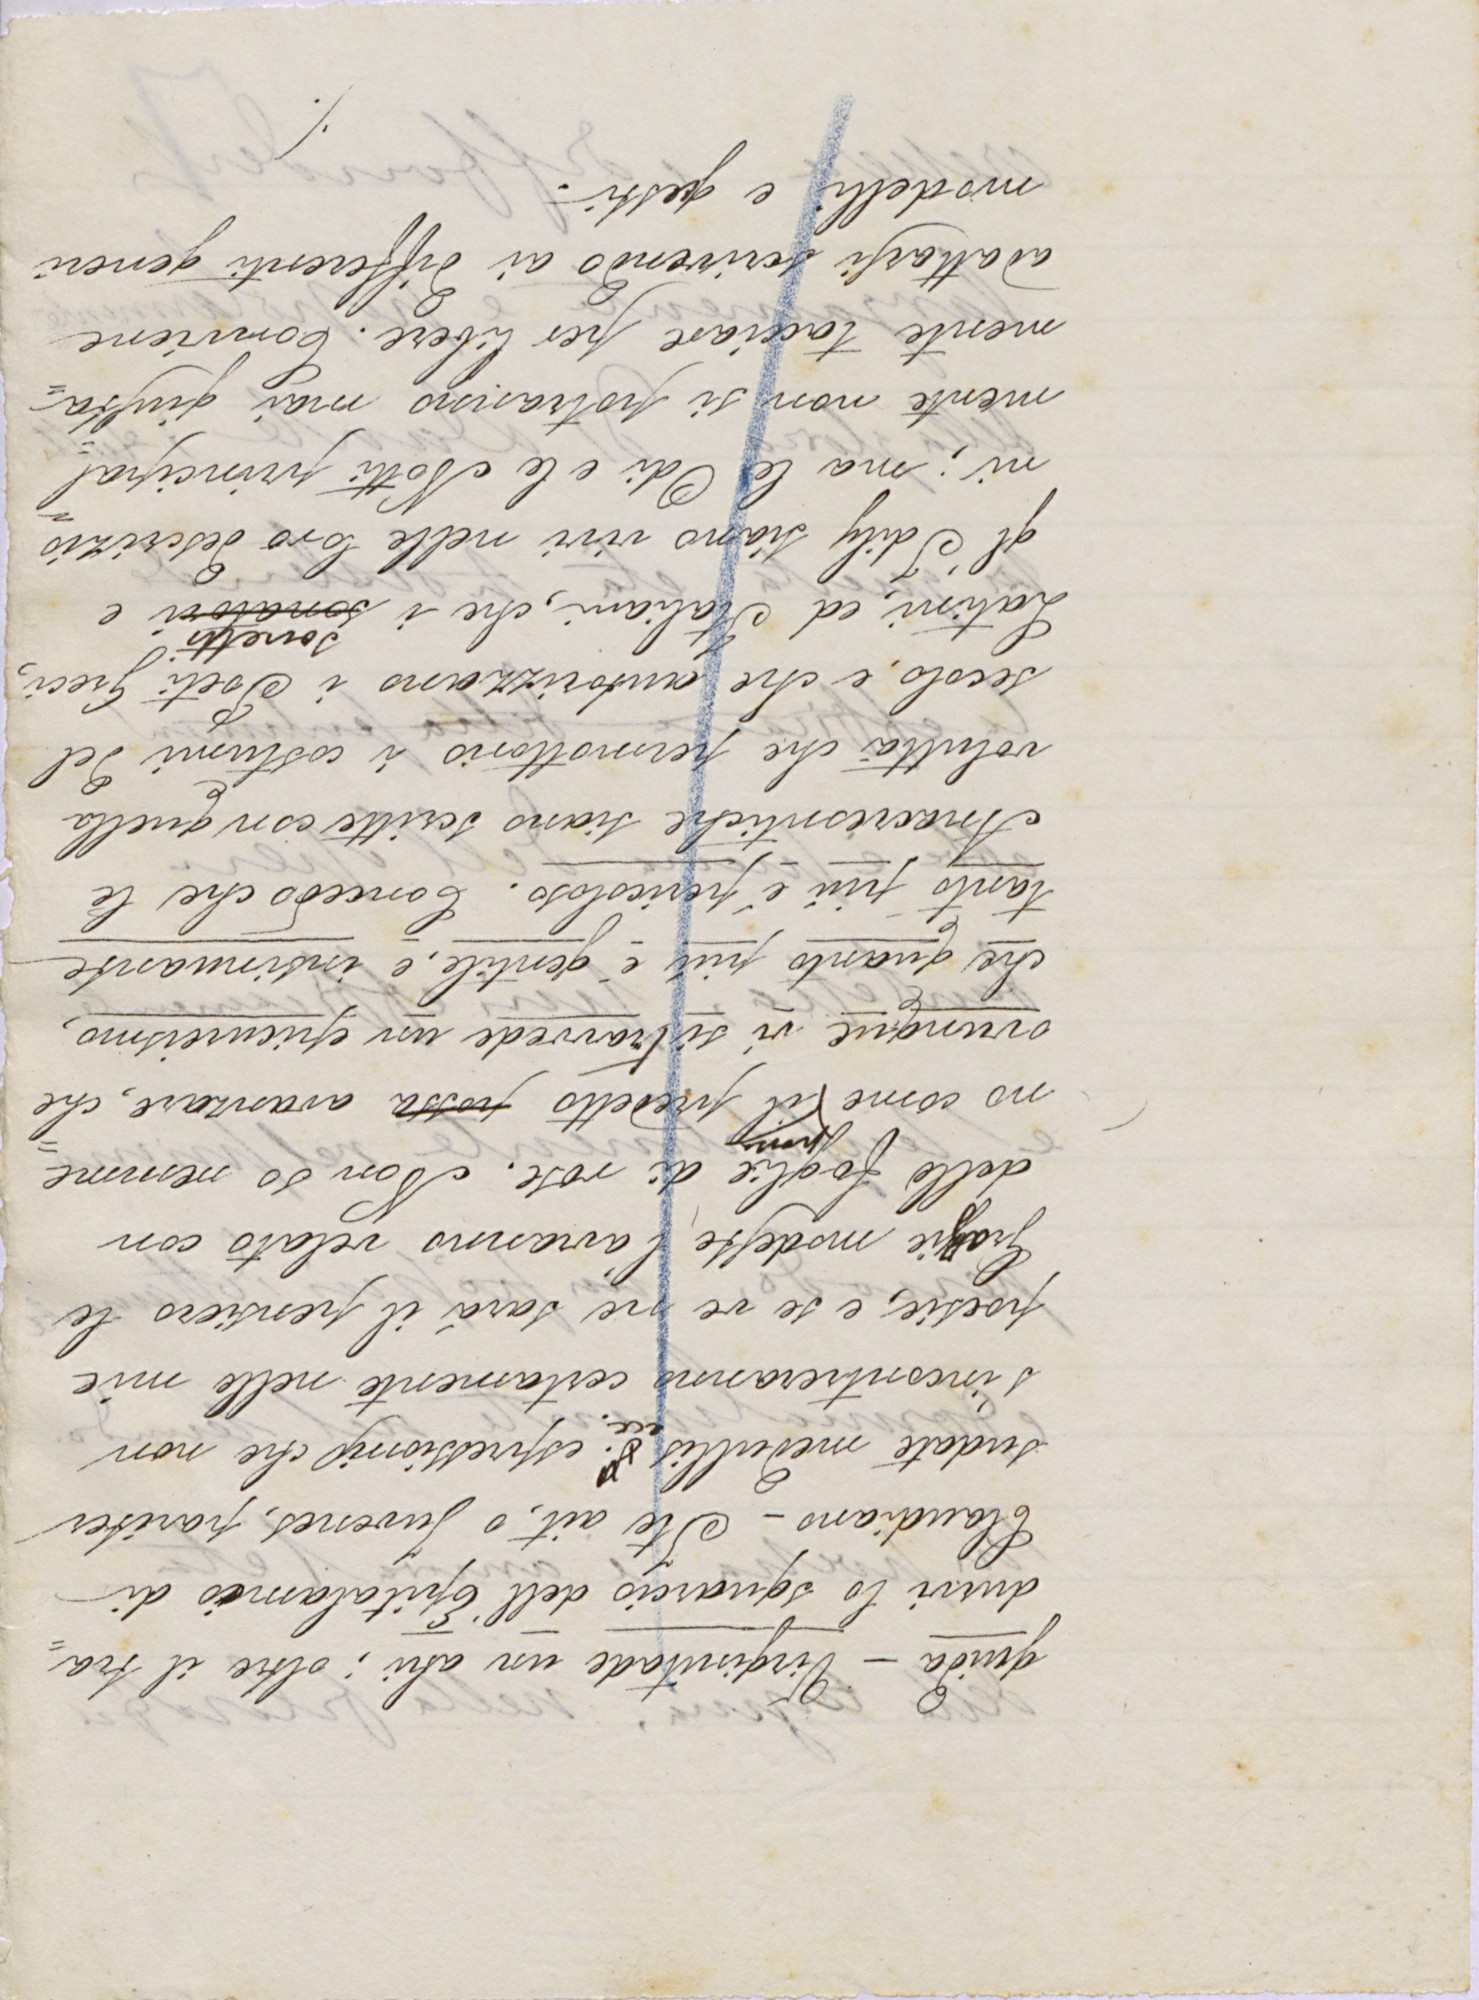 guida – Virginitade un asi; oltre il tra=
durvi lo squarcio dell'Epitalamio di
Claudiano – Ite ait, o Juvenes, pariter
sudate medullis &. ecc. espressioni che non
s'incontreranno certamente nelle mie
poesie; e se ve ne sarà il pensiero le
Grazie modeste l'avranno velato con
delle foglie di rose. Non so nemme=
no come il primo predetto possa avanzare, che
ovunque vi si travvede un epicureismo,
che quanto più è gentile, e insinuante
tanto più è pericoloso. Concedo che le
Anacreontiche siano scritte con quella
voluttà che permottono i costumi del
secolo, e che autorizzano i Poeti Greci,
Latini, ed Italiani, che i sonatori sonetti e
gl'Idilj siano vivi nelle loro descrizio=
ni; ma le Odi e le Notti principal=
mente non si potranno mai giusta=
mente tacciare per libere. Conviene
adattarsi scrivendo ai differenti generi
modelli e gesti. –
./.